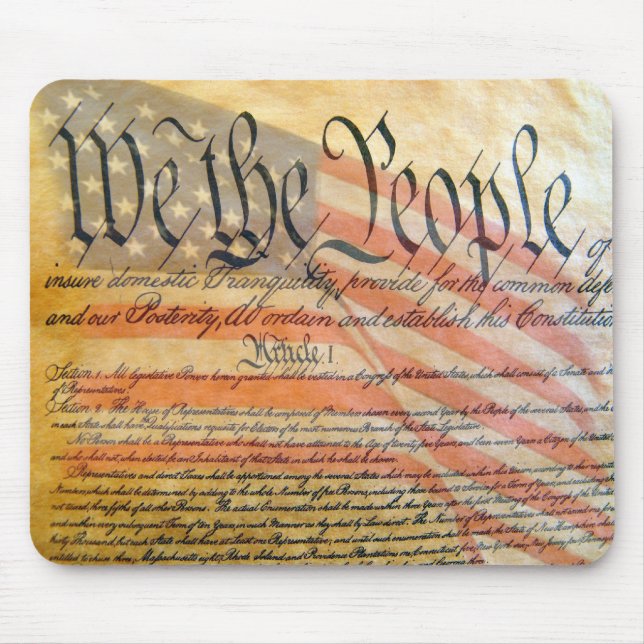 We the People of
insure domestic Tranquility, provide for the common defe
and our Posterity, do ordain and establish this Constitution
Article. I.
Section. 1. All legislative Powers herein granted shall be vested in a Congress of the United States, which shall consist of a Senate and
of Representatives.
Section. 2. The House of Representatives shall be composed of Members chosen every second Year by the People of the several States, and the
in each State shall have Qualifications requisite for Electors of the most numerous Branch of the State Legislature.
No Person shall be a Representative who shall not have attained to the Age of twenty five Years, and been seven Years a Citizen of the United
and who shall not, when elected, be an Inhabitant of that State in which he shall be chosen.
Representatives and direct Taxes shall be apportioned among the several States which may be included within this Union, according to their respective
Numbers, which shall be determined by adding to the whole Number of free Persons, including those bound to Service for a Term of Years, and excluding
not taxed, three fifths of all other Persons. The actual Enumeration shall be made within three Years after the first Meeting of the Congress of the United
and within every subsequent Term of ten Years, in such Manner as they shall by Law direct. The Number of Representatives shall not exceed one for
thirty Thousand, but each State shall have at Least one Representative; and until such enumeration shall be made, the State of New Hampshire shall
entitled to chuse three, Massachusetts eight, Rhode Island and Providence Plantations one, Connecticut five, New York six, New Jersey four, Pennsylvania